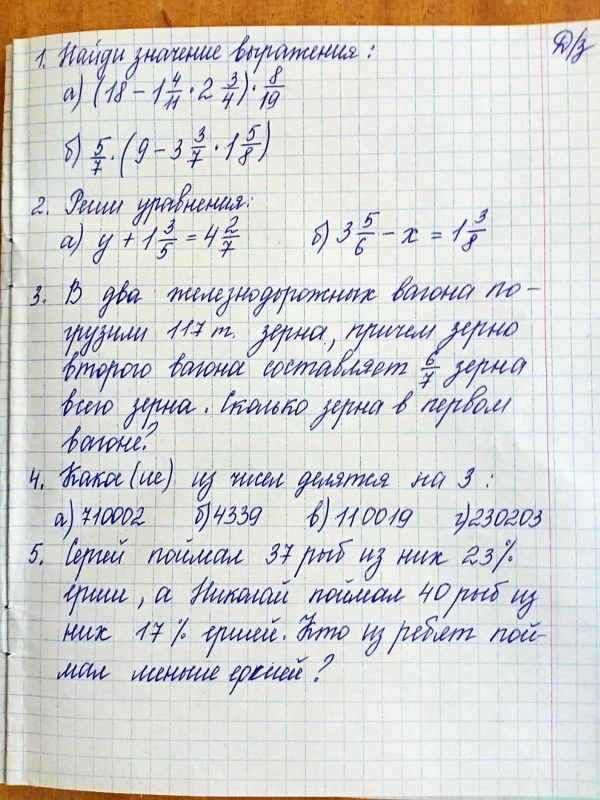 Д/з
1. Найди значение выражения:
а) (18 - 1 4/11 · 2 3/4) · 8/19
б) 5/7 · (9 - 3 3/7 · 1 5/8)
2. Реши уравнения:
а) y + 1 3/5 = 4 2/7 б) 3 5/6 - x = 1 3/8
3. В два железнодорожных вагона по-
грузили 117 т. зерна, причем зерно
второго вагона составляет 6/7 зерна
всего зерна. Сколько зерна в первом
вагоне?
4. Кака(ие) из чисел делятся на 3:
а) 710002 б) 4339 в) 110019 г) 230203
5. Сергей поймал 37 рыб из них 23%
ерши, а Николай поймал 40 рыб из
них 17% ершей. Кто из ребят пой-
мал меньше ершей?